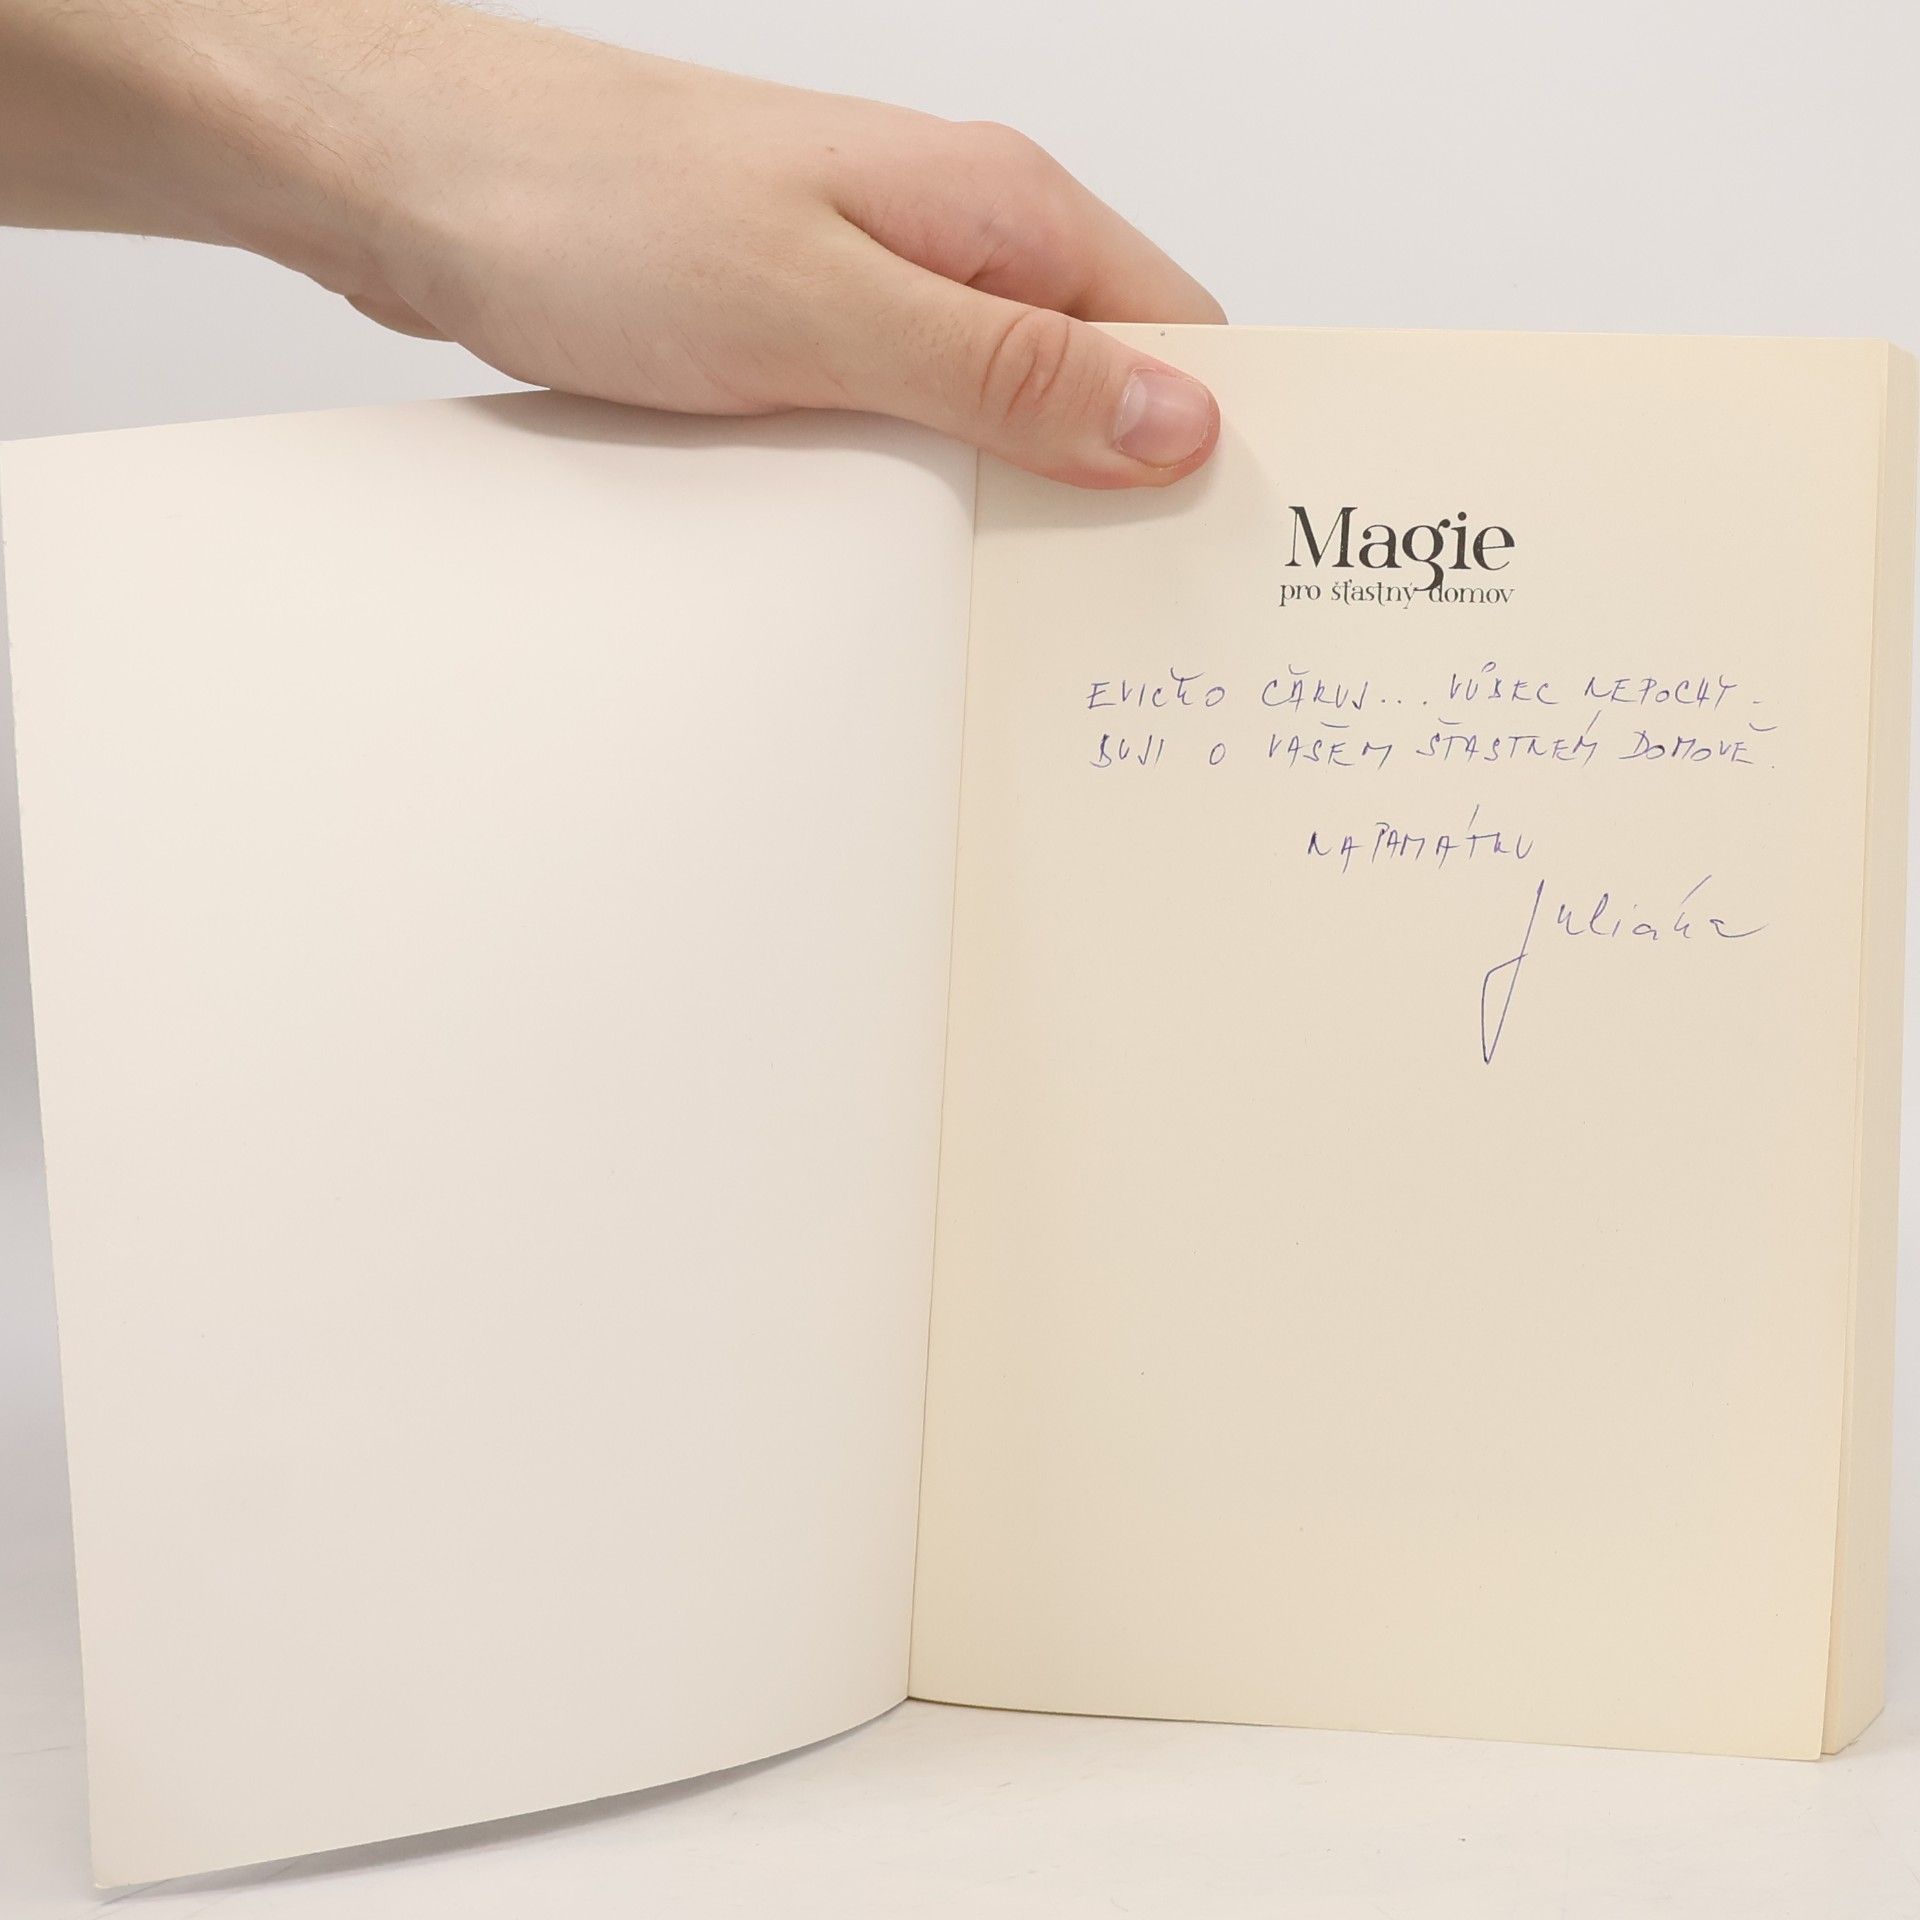 Magie
pro šťastný domov
EVIČKO ČARUJ... VŮBEC NEPOCHY-
BUJI O VAŠEM ŠŤASTNÉM DOMOVĚ.
NA PAMÁTKU
Juliána